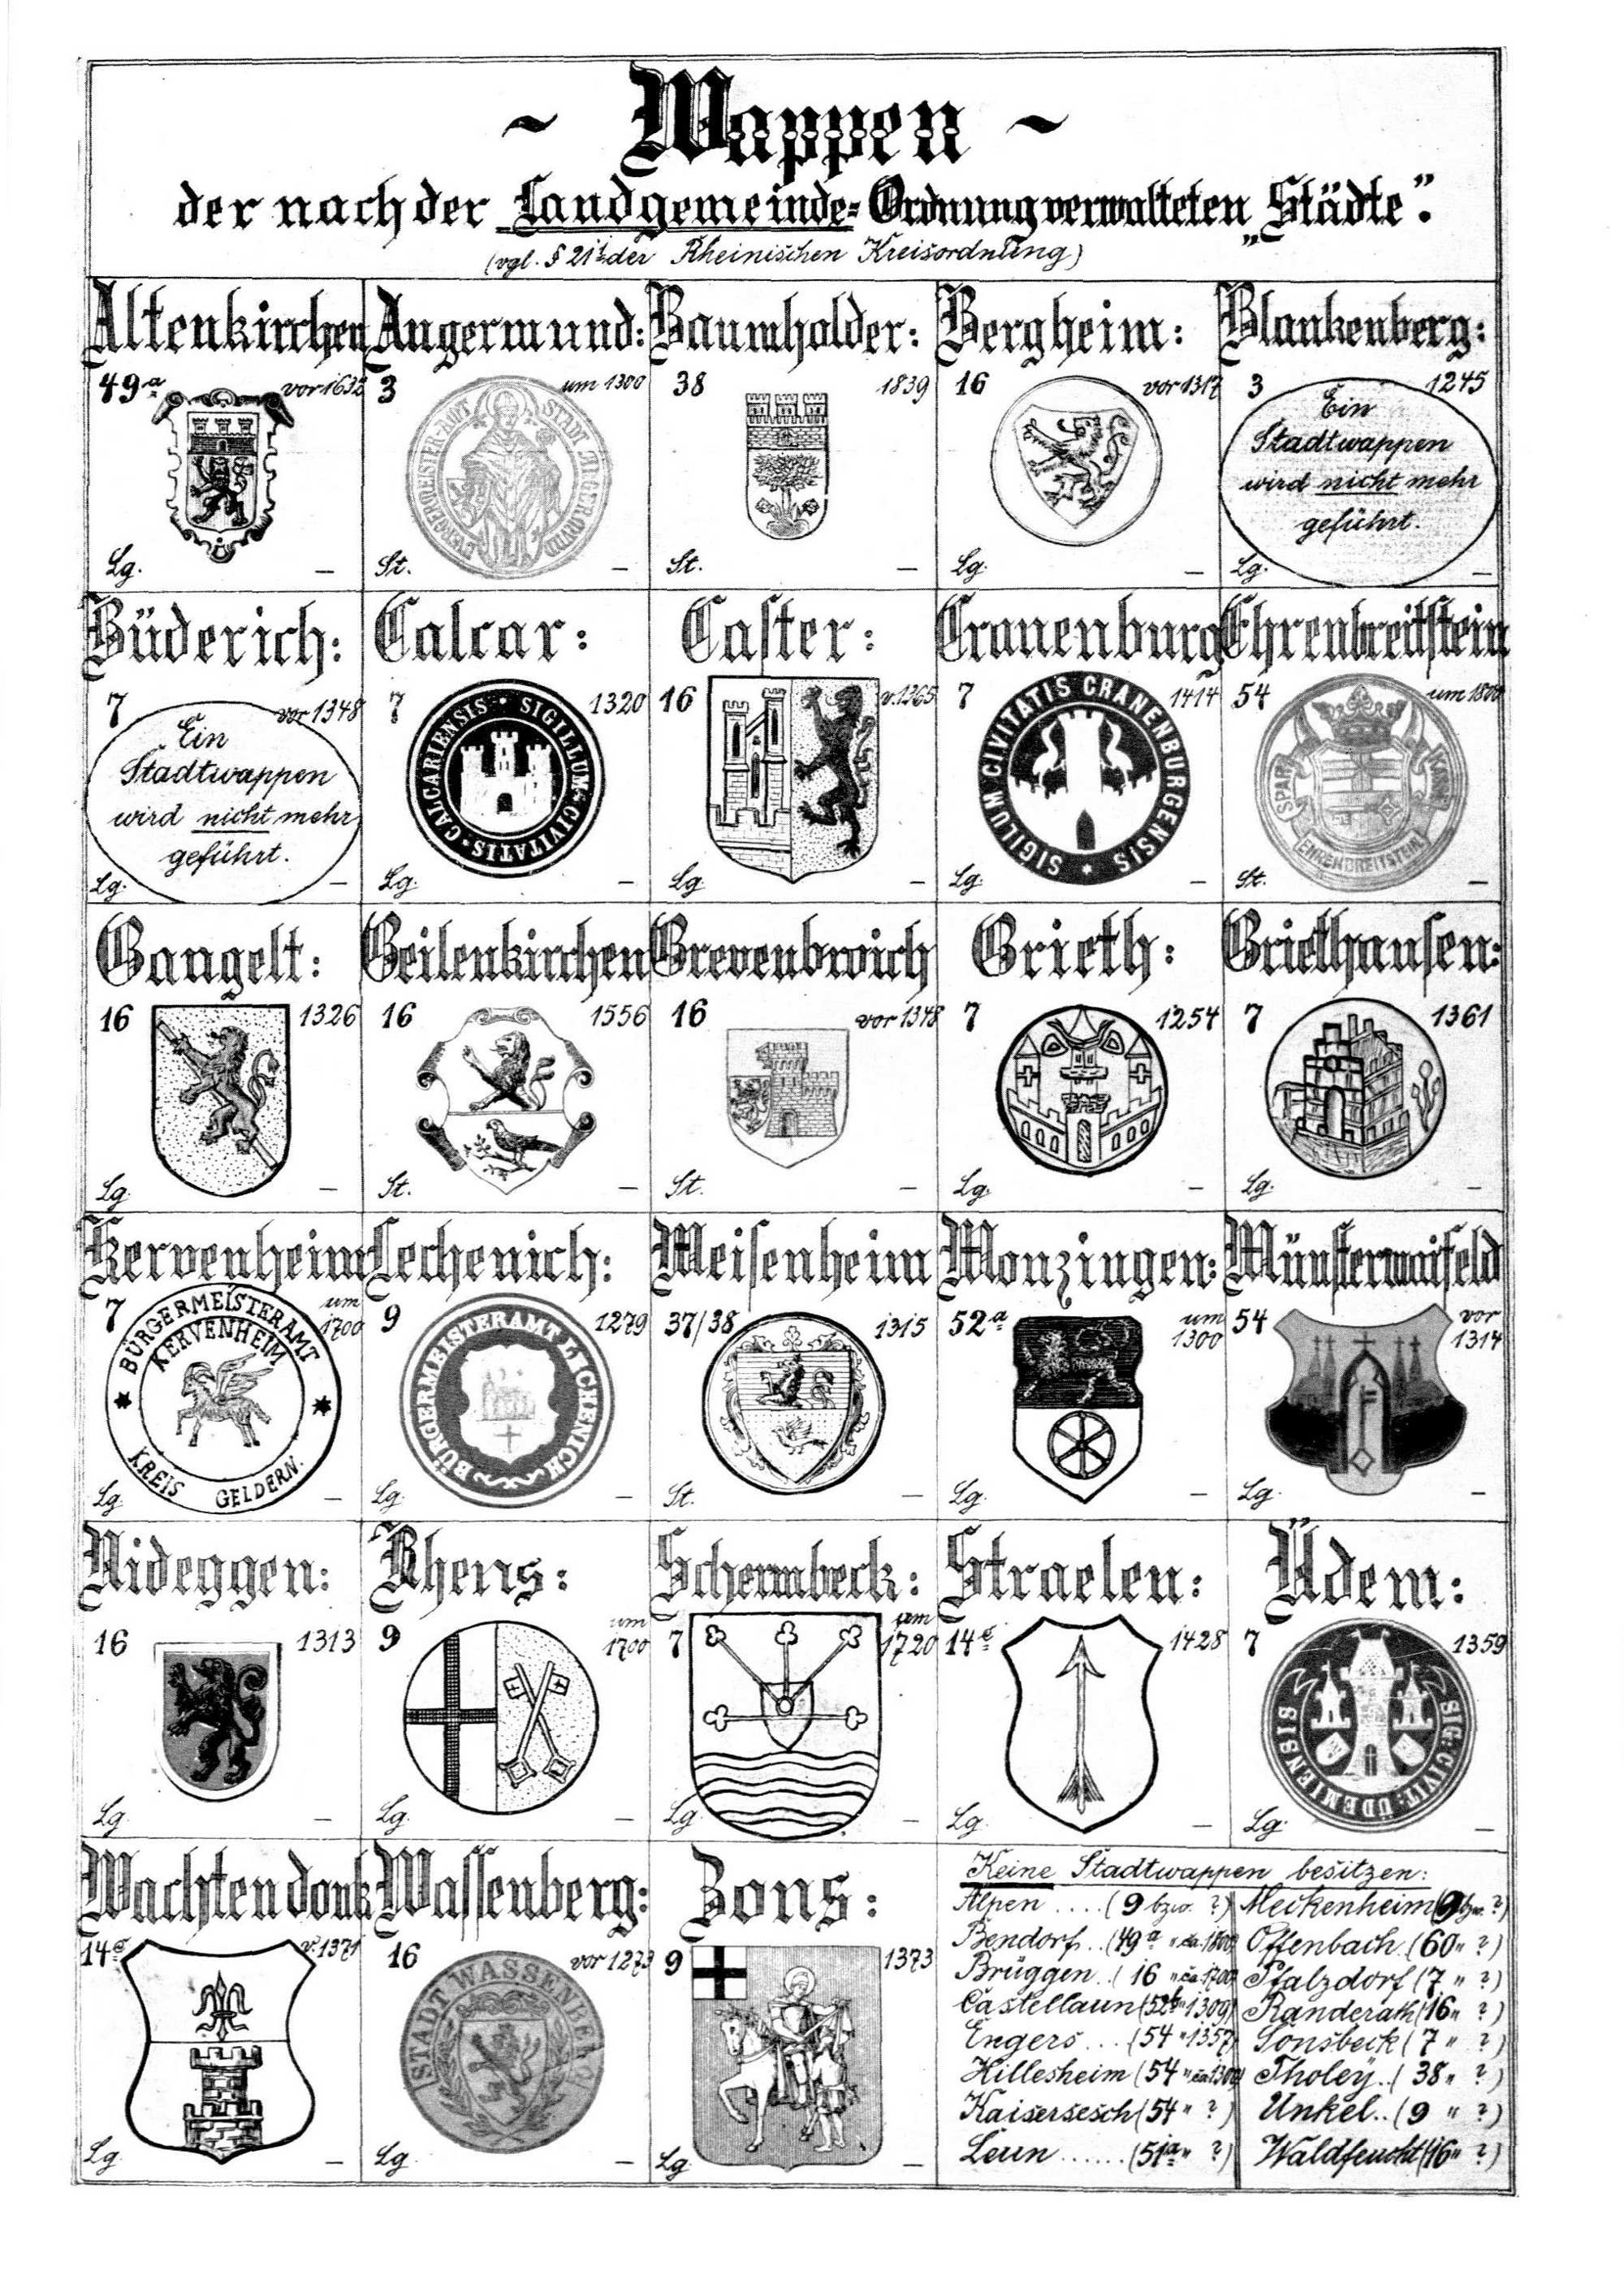 ~ Wappen ~
der nach der Landgemeinde-Ordnung verwalteten „Städte".
(vgl. § 21 der Rheinischen Kreisordnung)
Altenkirchen
49a vor 1632
Lg. —
Angermund:
3 um 1300
BÜRGERMEISTER-AMT STADT ANGERMUND
St. —
Baumholder:
38 1839
St. —
Bergheim:
16 vor 1317
Lg. —
Blankenberg:
3 1245
Ein
Stadtwappen
wird nicht mehr
geführt.
Lg. —
Büderich:
7 vor 1348
Ein
Stadtwappen
wird nicht mehr
geführt.
Lg. —
Calcar:
7 1320
SIGILLUM · CIVITATIS · CALCARIENSIS ·
Lg. —
Caster:
16 v. 1365
Lg. —
Cranenburg
7 1414
SIGILUM CIVITATIS CRANENBURGENSIS *
Lg. —
Ehrenbreitstein
54 um 1800
SPAR KASSE
EHRENBREITSTEIN
St. —
Gangelt:
16 1326
Lg. —
Geilenkirchen
16 1556
St. —
Grevenbroich
16 vor 1348
St. —
Grieth:
7 1254
Lg. —
Griethausen:
7 1361
Lg. —
Kervenheim
7 um
1700
BÜRGERMEISTERAMT
KERVENHEIM
KREIS GELDERN.
Lg. —
Lechenich:
9 1279
BÜRGERMEISTERAMT LECHENICH
Lg. —
Meisenheim
37/38 1315
St. —
Monzingen:
52a um
1300
Lg. —
Münstermaifeld
54 vor
1314
Lg. —
Nideggen:
16 1313
Lg. —
Rhens:
9 um
1700
Lg. —
Schermbeck:
7 um
1720
Lg. —
Straelen:
14e 1428
Lg. —
Üdem:
7 1359
SIG: CIVIT: ÜDEMIENSIS
Lg. —
Wachtendonk
14e v. 1371
Lg —
Wassenberg:
16 vor 1273
STADT WASSENBERG
Lg. —
Zons:
9 1373
Lg. —
Keine Stadtwappen besitzen:
Alpen .... (9 bzw. ?) Meckenheim (9 bzw. ?)
Bendorf .. (49a " ca. 1800) Offenbach (60 " ?)
Brüggen .. (16 " ca. 1700) Pfalzdorf (7 " ?)
Castellaun (52b " 1309) Randerath (16 " ?)
Engers ... (54 " 1357) Sonsbeck (7 " ?)
Hillesheim (54 " ca. 1300) Tholey .. (38 " ?)
Kaisersesch (54 " ?) Unkel .. (9 " ?)
Leun ...... (51a " ?) Waldfeucht (16 " ?)